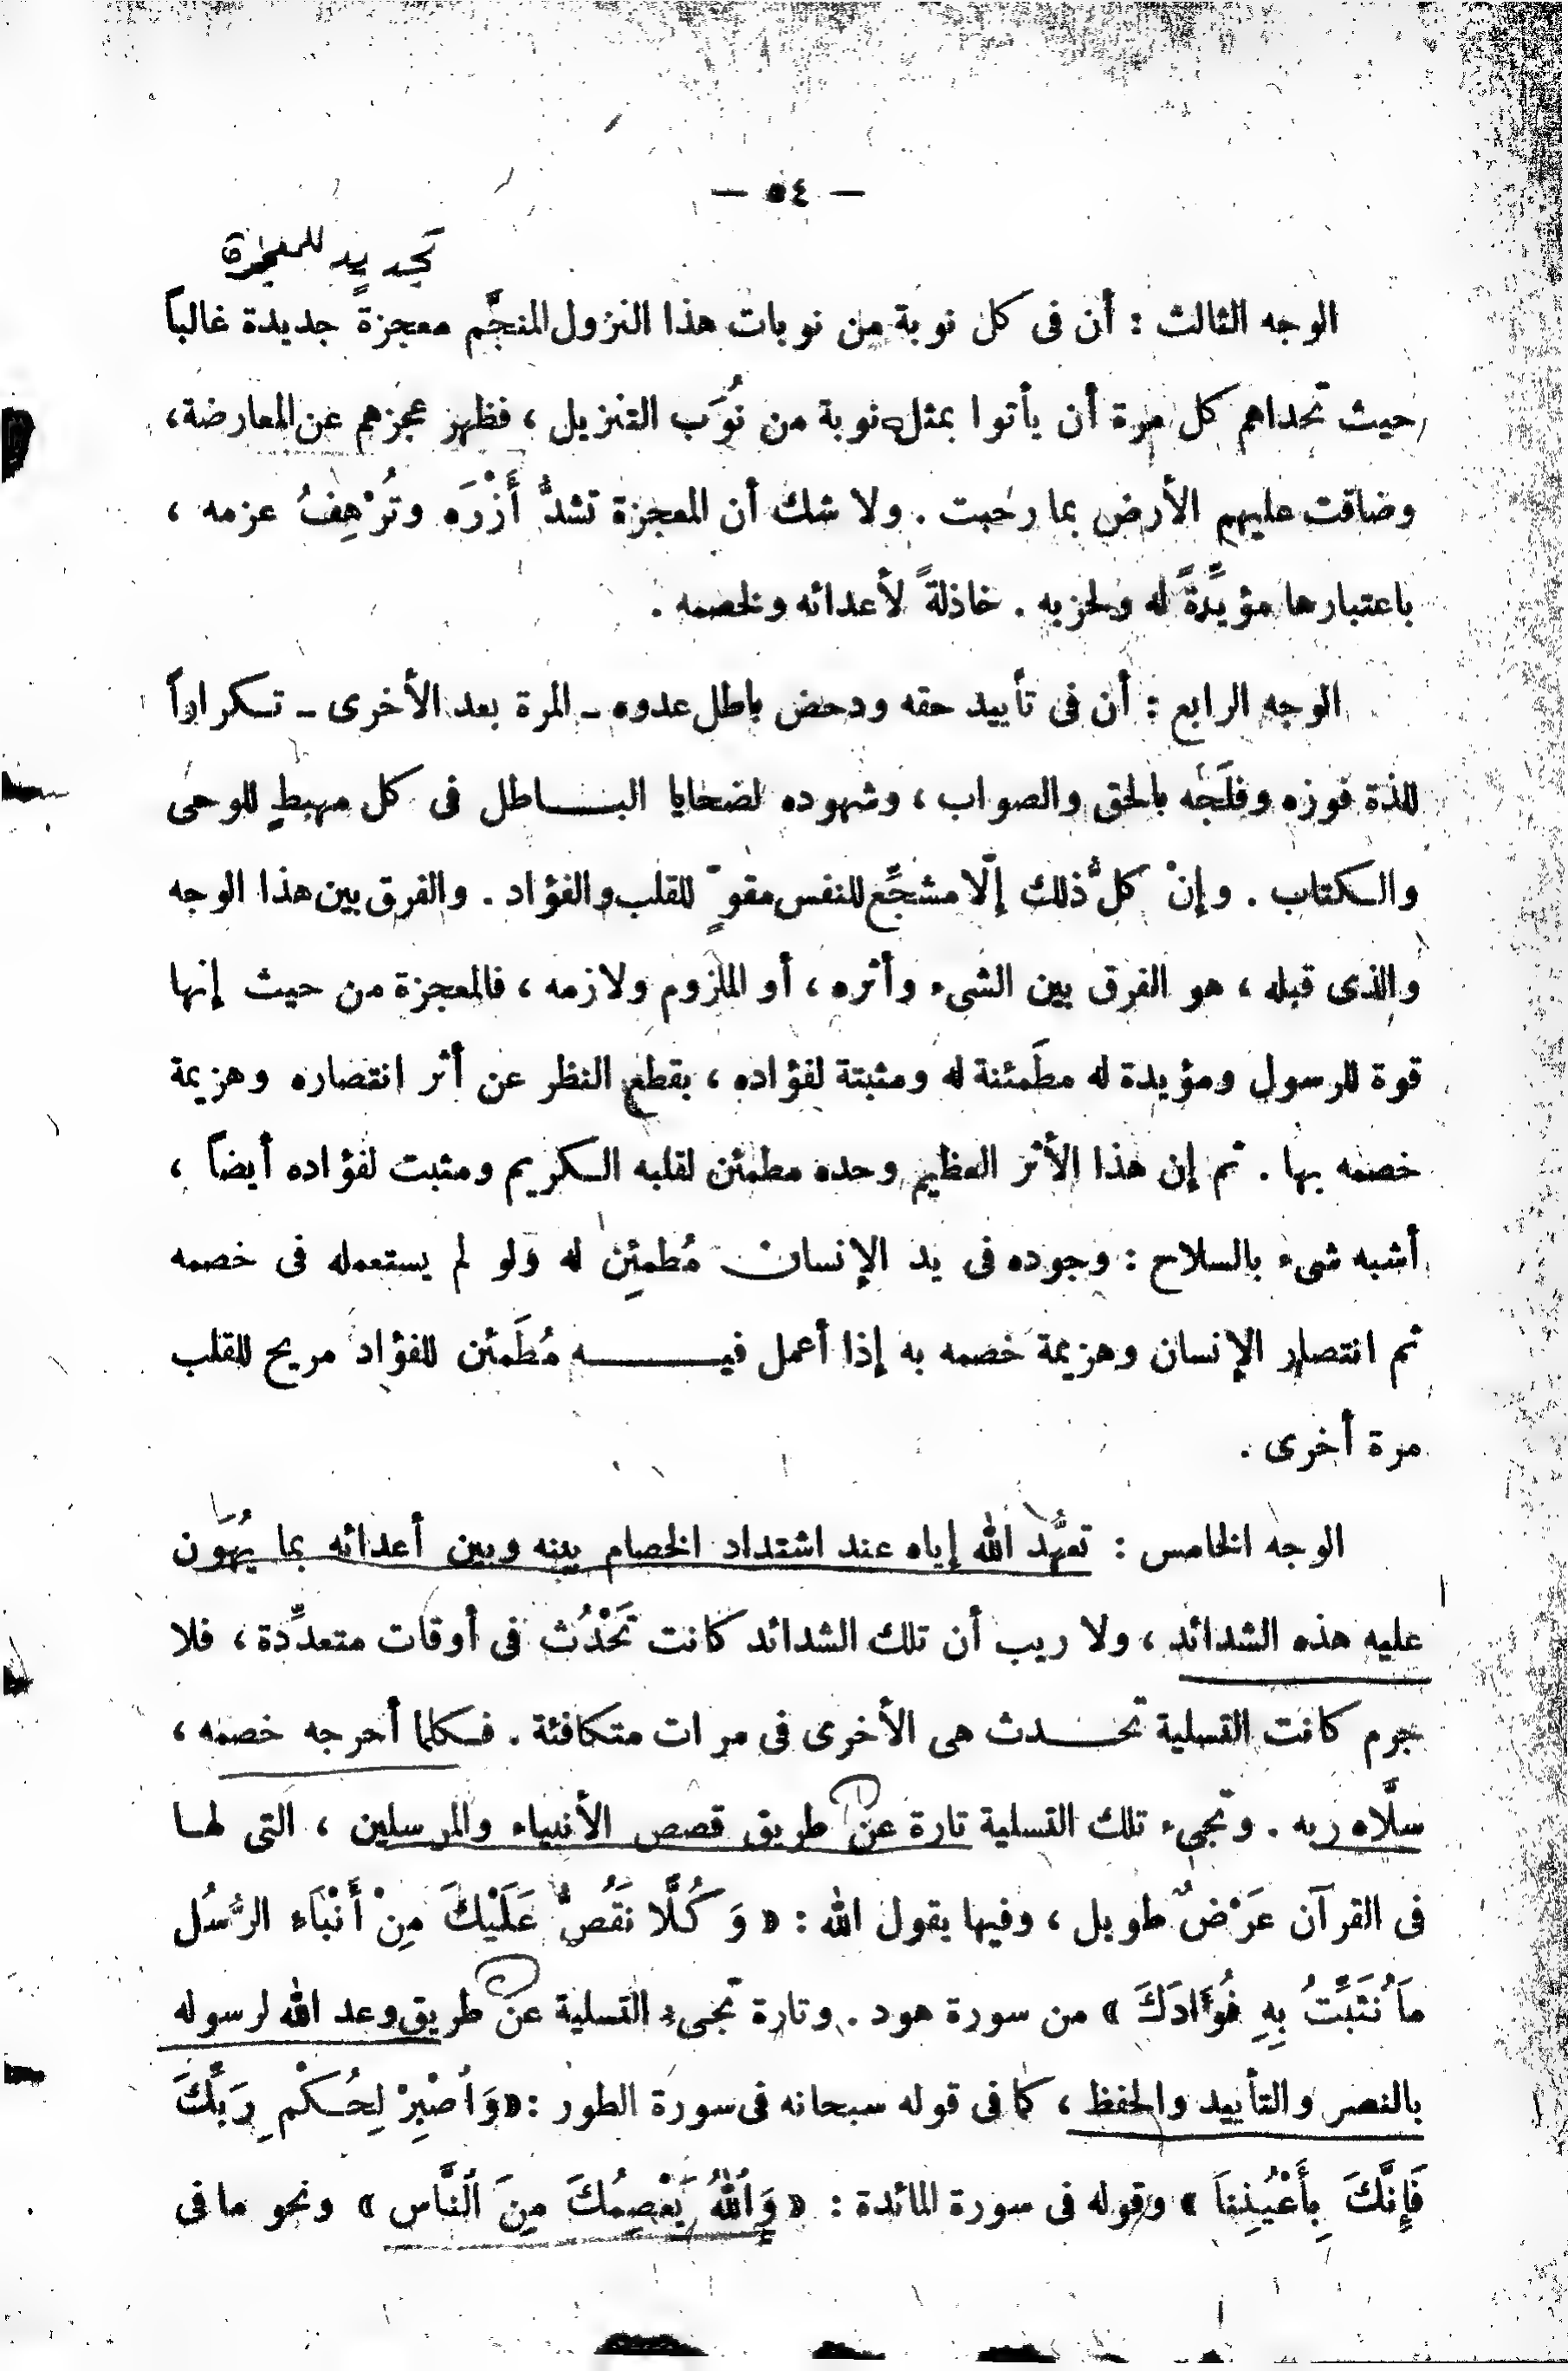 — ٥٤ —
تجديد للمعجزة
الوجه الثالث : أن فى كل نوبة من نوبات هذا النزول المنجَّم معجزةً جديدة غالباً
حيث تحداهم كل مرة أن يأتوا بمثل نوبة من نُوَب التنزيل ، فظهر عجزهم عن المعارضة ،
وضاقت عليهم الأرض بما رحبت . ولا شك أن المعجزة تشدُّ أَزْرَه وتُرْهِفُ عزمه ،
باعتبارها مؤيِّدةً له ولحزبه . خاذلةً لأعدائه ولخصمه .
الوجه الرابع : أن فى تأييد حقه ودحض باطل عدوه ــ المرة بعد الأخرى ــ تكراراً
للذة فوزه وفلَجَه بالحق والصواب ، وشهوده لضحايا البـاطل فى كل مهبطٍ للوحى
والكتاب . وإنْ كلُّ ذلك إلَّا مشجِّع للنفس مقوٍّ للقلب والفؤاد . والفرق بين هذا الوجه
والذى قبله ، هو الفرق بين الشىء وأثره ، أو الملزوم ولازمه ، فالمعجزة من حيث إنها
قوة للرسول ومؤيدة له مطَمئنة له ومثبتة لفؤاده ، بقطع النظر عن أثر انتصاره وهزيمة
خصمه بها . ثم إن هذا الأثر العظيم وحده مطمئن لقلبه الكريم ومثبت لفؤاده أيضاً ،
أشبه شىء بالسلاح : وجوده فى يد الإنسان مُطمئِن له ولو لم يستعمله فى خصمه
ثم انتصار الإنسان وهزيمة خصمه به إذا أعمل فيـه مُطَمئن للفؤاد مريح للقلب
مرة أخرى .
الوجه الخامس : تعهُّد الله إياه عند اشتداد الخصام بينه وبين أعدائه بما يُهَون
عليه هذه الشدائد ، ولا ريب أن تلك الشدائد كانت تَحْدُث فى أوقات متعدِّدة ، فلا
جرم كانت التسلية تحـدث هى الأخرى فى مرات متكافئة . فكلما أحرجه خصمه ،
سلَّاه ربه . وتجىء تلك التسلية تارة عن طريق قصص الأنبياء والمرسلين ، التى لهـا
فى القرآن عَرْضٌ طويل ، وفيها يقول الله : « وَكُلًّا نَقُصُّ عَلَيْكَ مِنْ أَنْبَاءِ الرُّسُلِ
مَا نُثَبِّتُ بِهِ فُؤَادَكَ » من سورة هود . وتارة تجىء التسلية عن طريق وعد الله لرسوله
بالنصر والتأييد والحفظ ، كما فى قوله سبحانه فى سورة الطور : «وَاصْبِرْ لِحُكْمِ رَبِّكَ
فَإِنَّكَ بِأَعْيُنِنَا » وقوله فى سورة المائدة : « وَاللهُ يَعْصِمُكَ مِنَ النَّاسِ » ونحو ما فى